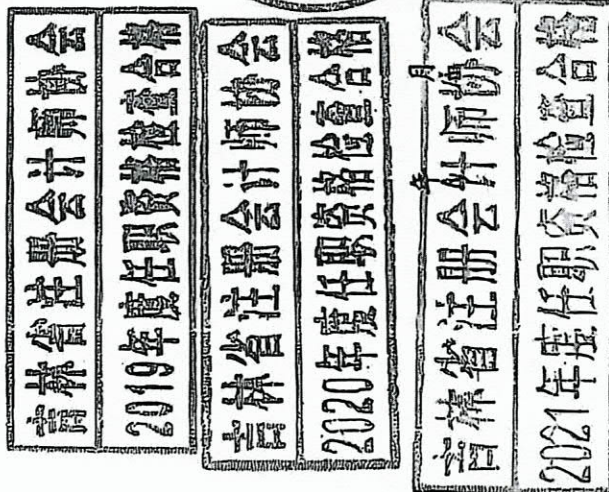 吉林省注册会计师协会
2019年度任职资格检查合格
吉林省注册会计师协会
2020年度任职资格检查合格
月
年
吉林省注册会计师协会
2021年度任职资格检查合格